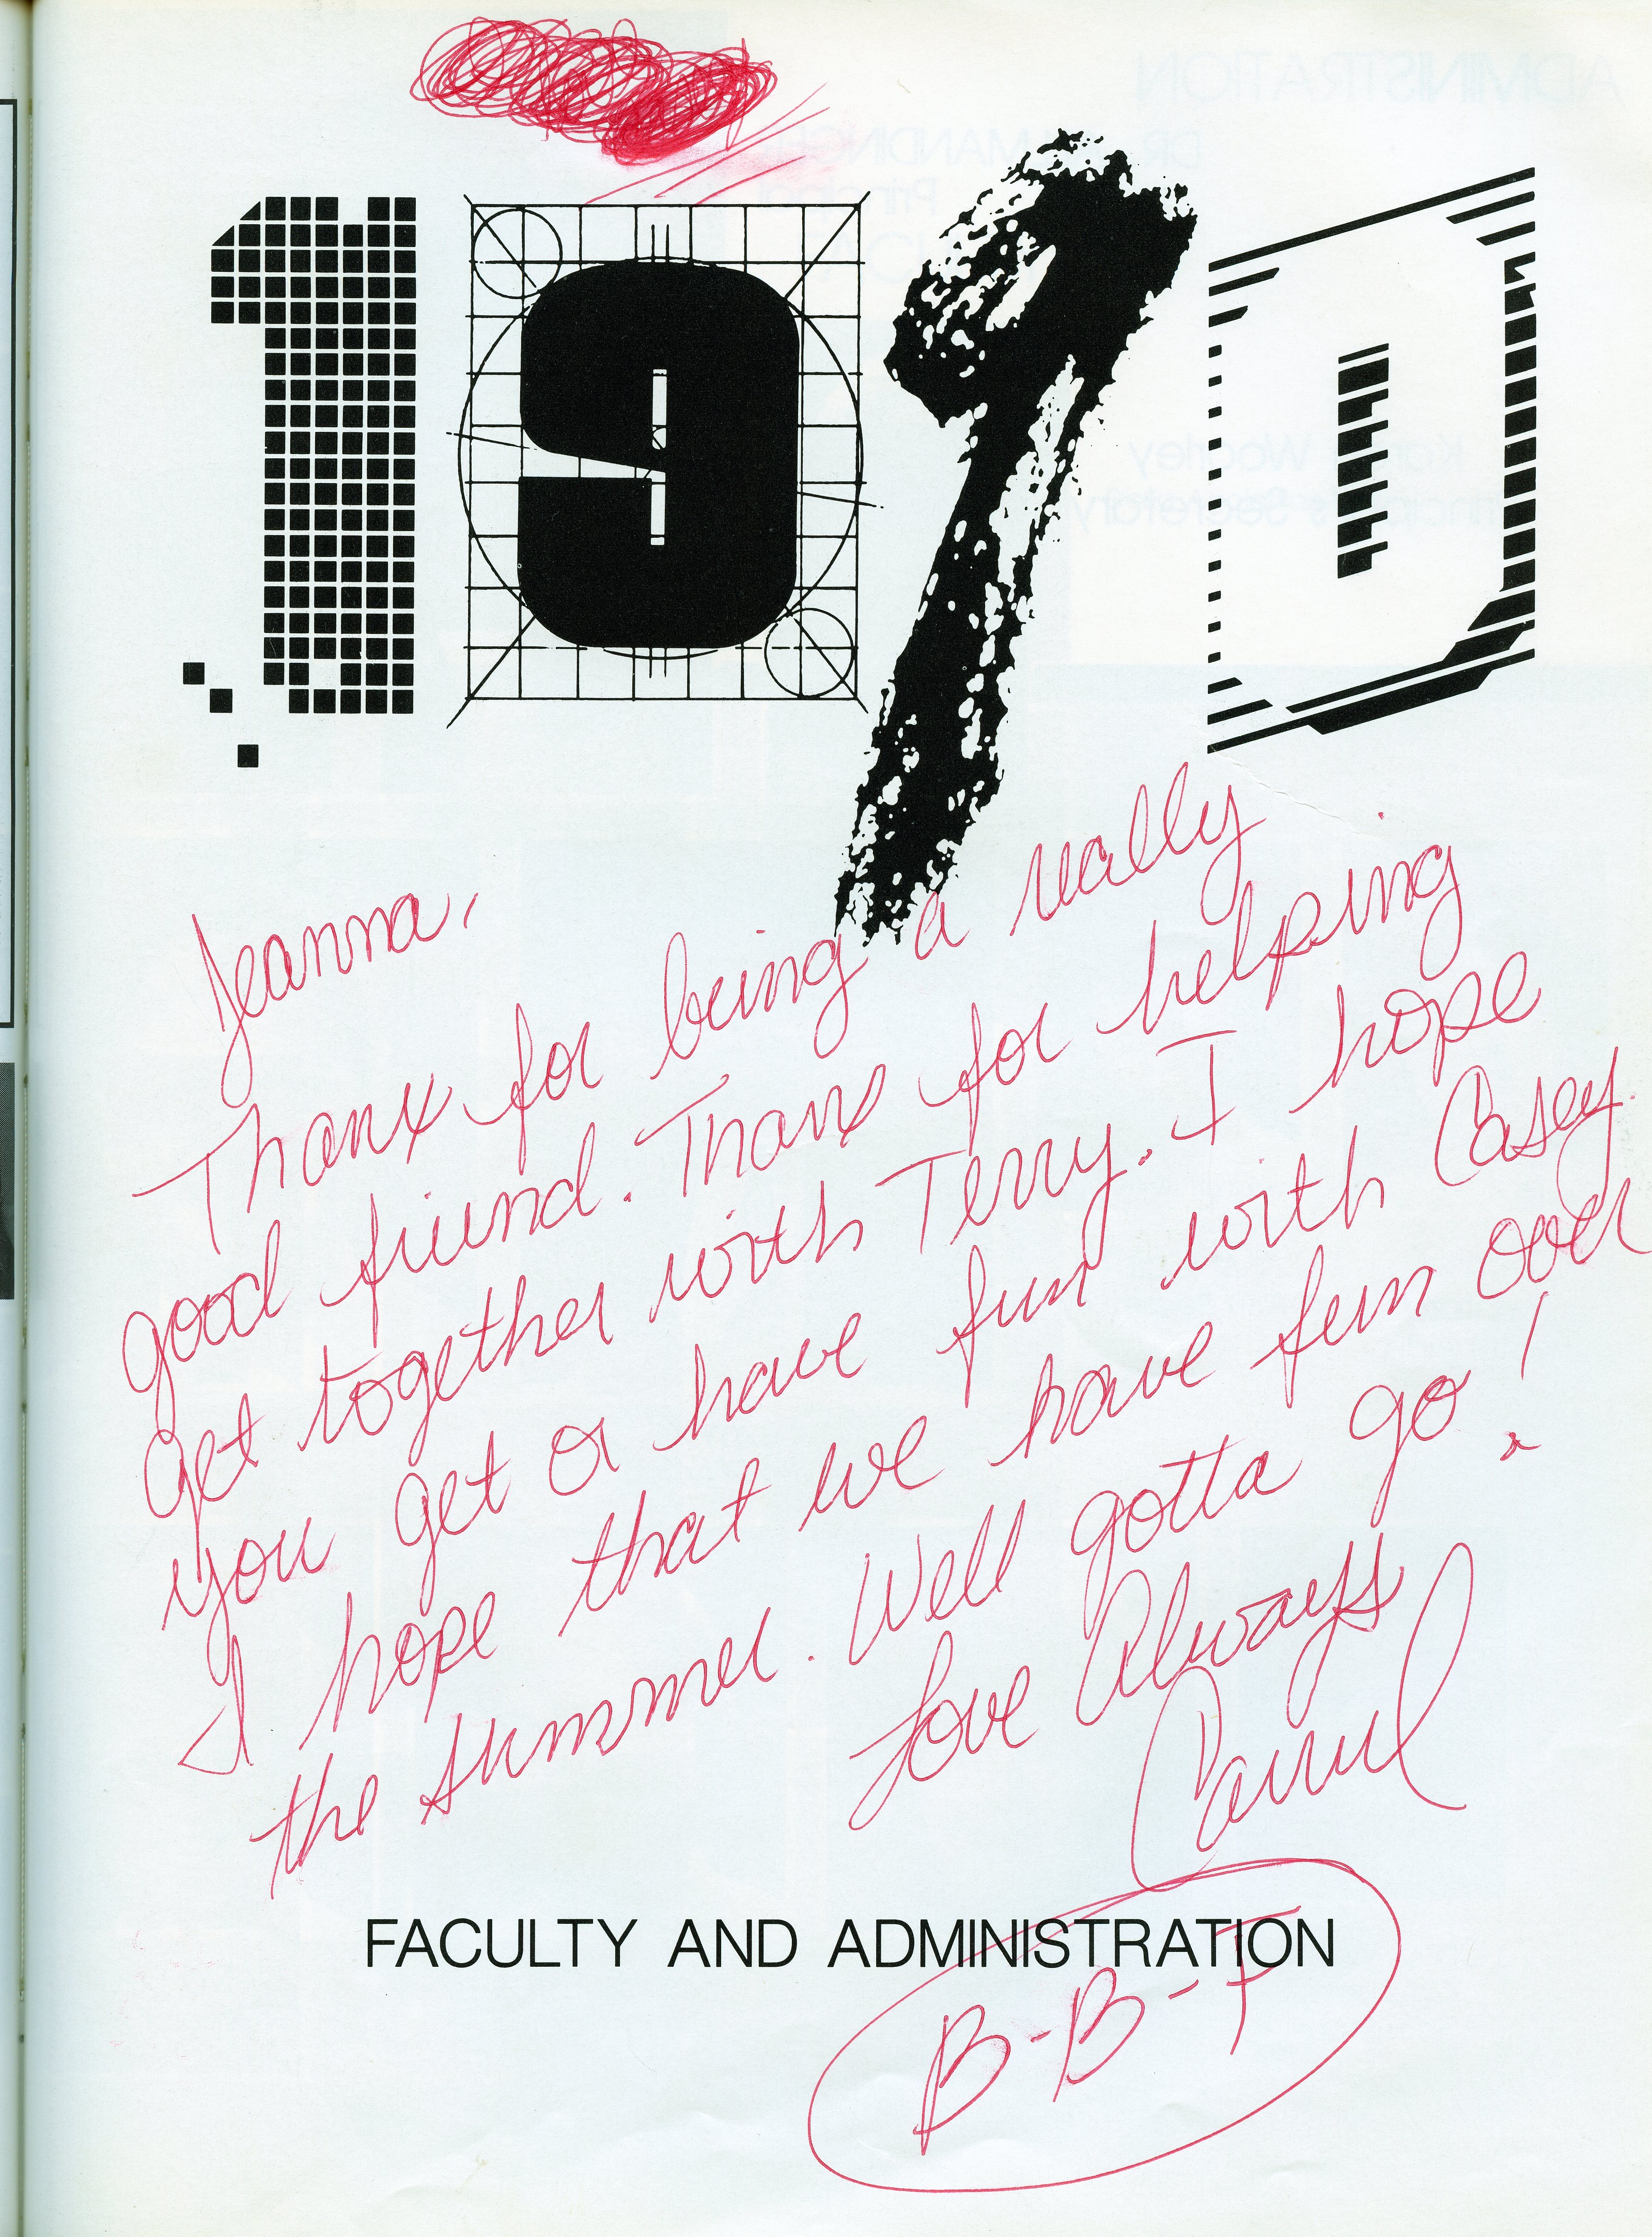 1970
Jeanna,
Thanx for being a really
good friend. Thanx for helping
get together with Terry. I hope
you get or have fun with Casey.
I hope that we have fun over
the summer. Well gotta go!
Love Always
FACULTY AND ADMINISTRATION
B-B-F